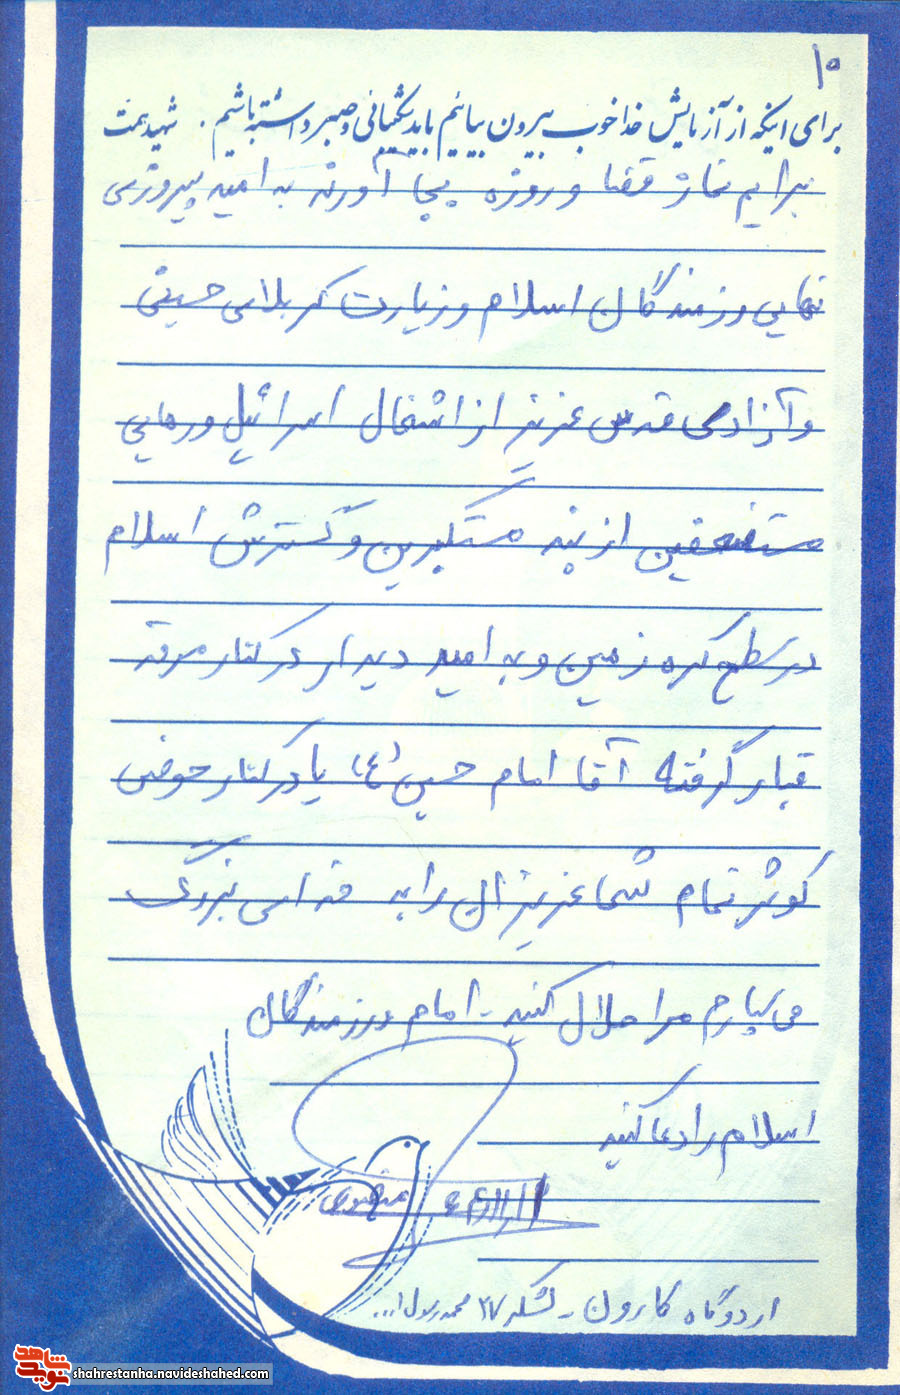 ۱۰
برای اینکه از آزمایش خدا خوب بیرون بیائیم باید شکیبائی و صبر داشته باشیم . شهید همت
برایم نماز قضا و روزه بجا آورند به امید پیروزی
نهایی رزمندگان اسلام و زیارت کربلای حسینی
و آزادی قدس عزیز از اشغال اسرائیل و رهایی
مستضعفین از بند مستکبرین و گسترش اسلام
در سطح کره زمین و به امید دیدار در کنار مرقد
قبار گرفته آقا امام حسین (ع) یا در کنار حوض
کوثر تمام شما عزیزان را به خدای بزرگ
می سپارم مرا حلال کنید - امام و رزمندگان
اسلام را دعا کنید
منصوری
اردوگاه کارون - لشکر ۲۷ محمد رسول ا...
نوید شاهد
shahrestanha.navideshahed.com